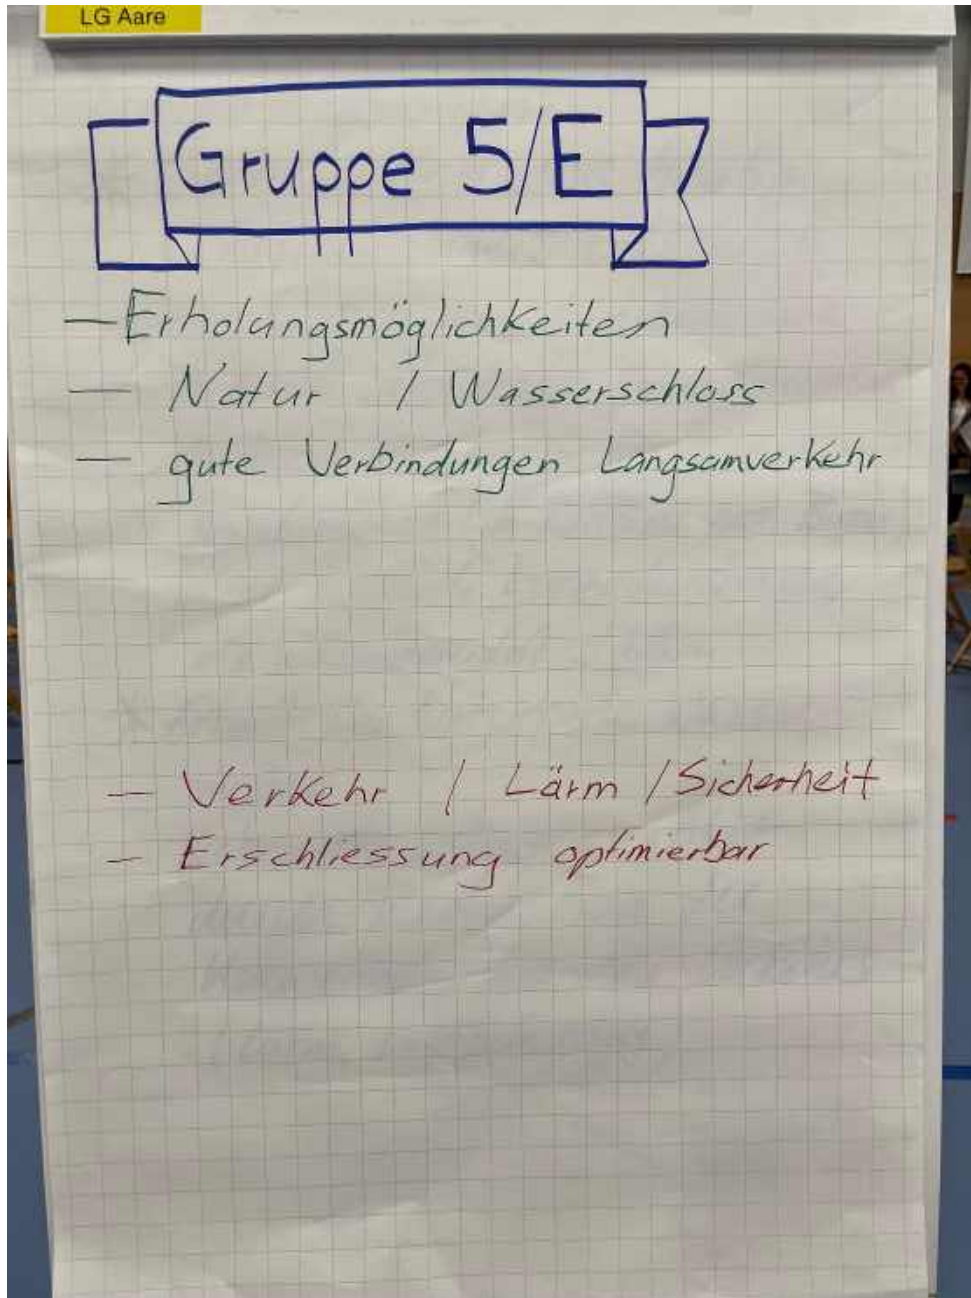 LG Aare
Gruppe 5/E
— Erholungsmöglichkeiten
— Natur / Wasserschloss
— gute Verbindungen Langsamverkehr
— Verkehr / Lärm / Sicherheit
— Erschliessung optimierbar